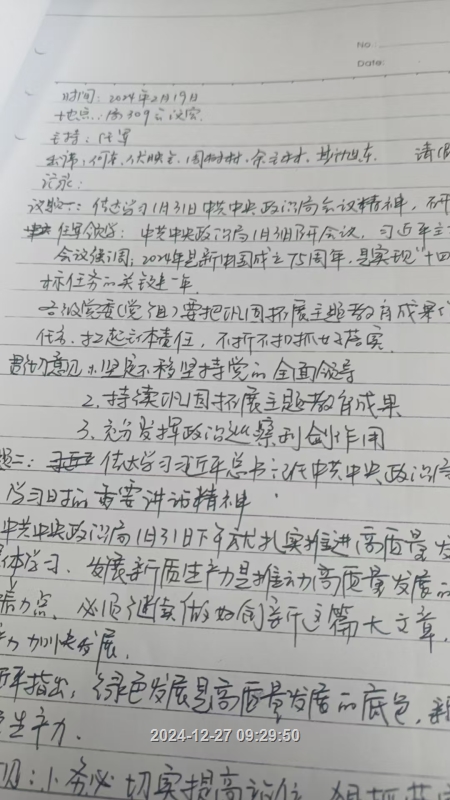 No
Date:
时间：2024年2月19日
地点：局309会议室
主持：任军
出席：何东、
记录：
议题一：传达学习1月31日中共中央政治局会议精神，
任军领学：中共中央政治局1月31日召开会议，习近平主
会议强调：2024年是新中国成立75周年，是实现"十四
标任务的关键一年。
各级党委（党组）要把巩固拓展主题教育成果
任务，扛起主体责任，不折不扣抓好落实。
贯彻意见：1.坚定不移坚持党的全面领导
2.持续巩固拓展主题教育成果
3.充分发挥政治巡察利剑作用
题二：传达学习习近平总书记在中共中央政治局
学习时的重要讲话精神
中共中央政治局1月31日下午就扎实推进高质量发
体学习。发展新质生产力是推动高质量发展的
着力点，必须继续做好创新这篇大文章，
力加快发展。
平指出，绿色发展是高质量发展的底色，新
生产力。
见：1.务必切实提高站位，狠抓
2024-12-27 09:29:50